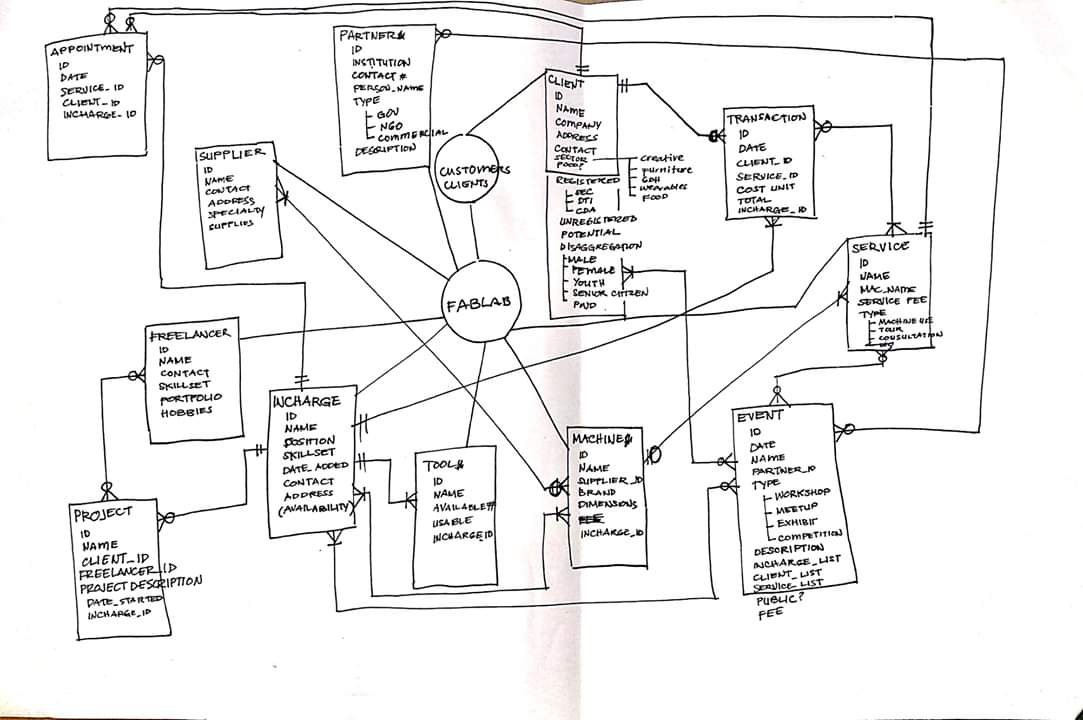 APPOINTMENT
ID
DATE
SERVICE_ID
CLIENT_ID
INCHARGE_ID
PARTNER
ID
INSTITUTION
CONTACT #
PERSON_NAME
TYPE
GOV
NGO
COMMERCIAL
DESCRIPTION
SUPPLIER
ID
NAME
CONTACT
ADDRESS
SPECIALTY
SUPPLIES
CUSTOMERS
CLIENTS
FABLAB
CLIENT
ID
NAME
COMPANY
ADDRESS
CONTACT
SECTOR
FOOD?
creative
furniture
GDH
wearables
FOOD
REGISTERED
SEC
DTI
CDA
UNREGISTERED
POTENTIAL
DISAGGREGATION
MALE
FEMALE
YOUTH
SENIOR CITIZEN
PWD
TRANSACTION
ID
DATE
CLIENT_ID
SERVICE_ID
COST UNIT
TOTAL
INCHARGE_ID
SERVICE
ID
NAME
MAC_NAME
SERVICE FEE
TYPE
MACHINE USE
TOUR
CONSULTATION
FREELANCER
ID
NAME
CONTACT
SKILLSET
PORTFOLIO
HOBBIES
INCHARGE
ID
NAME
POSITION
SKILLSET
DATE_ADDED
CONTACT
ADDRESS
(AVAILABILITY)
TOOL
ID
NAME
AVAILABLE#
USABLE
INCHARGE_ID
MACHINE
ID
NAME
SUPPLIER_ID
BRAND
DIMENSIONS
INCHARGE_ID
EVENT
ID
DATE
NAME
PARTNER_ID
TYPE
WORKSHOP
MEETUP
EXHIBIT
COMPETITION
DESCRIPTION
INCHARGE_LIST
CLIENT_LIST
SERVICE_LIST
PUBLIC?
FEE
PROJECT
ID
NAME
CLIENT_ID
FREELANCER_ID
PROJECT DESCRIPTION
DATE_STARTED
INCHARGE_ID